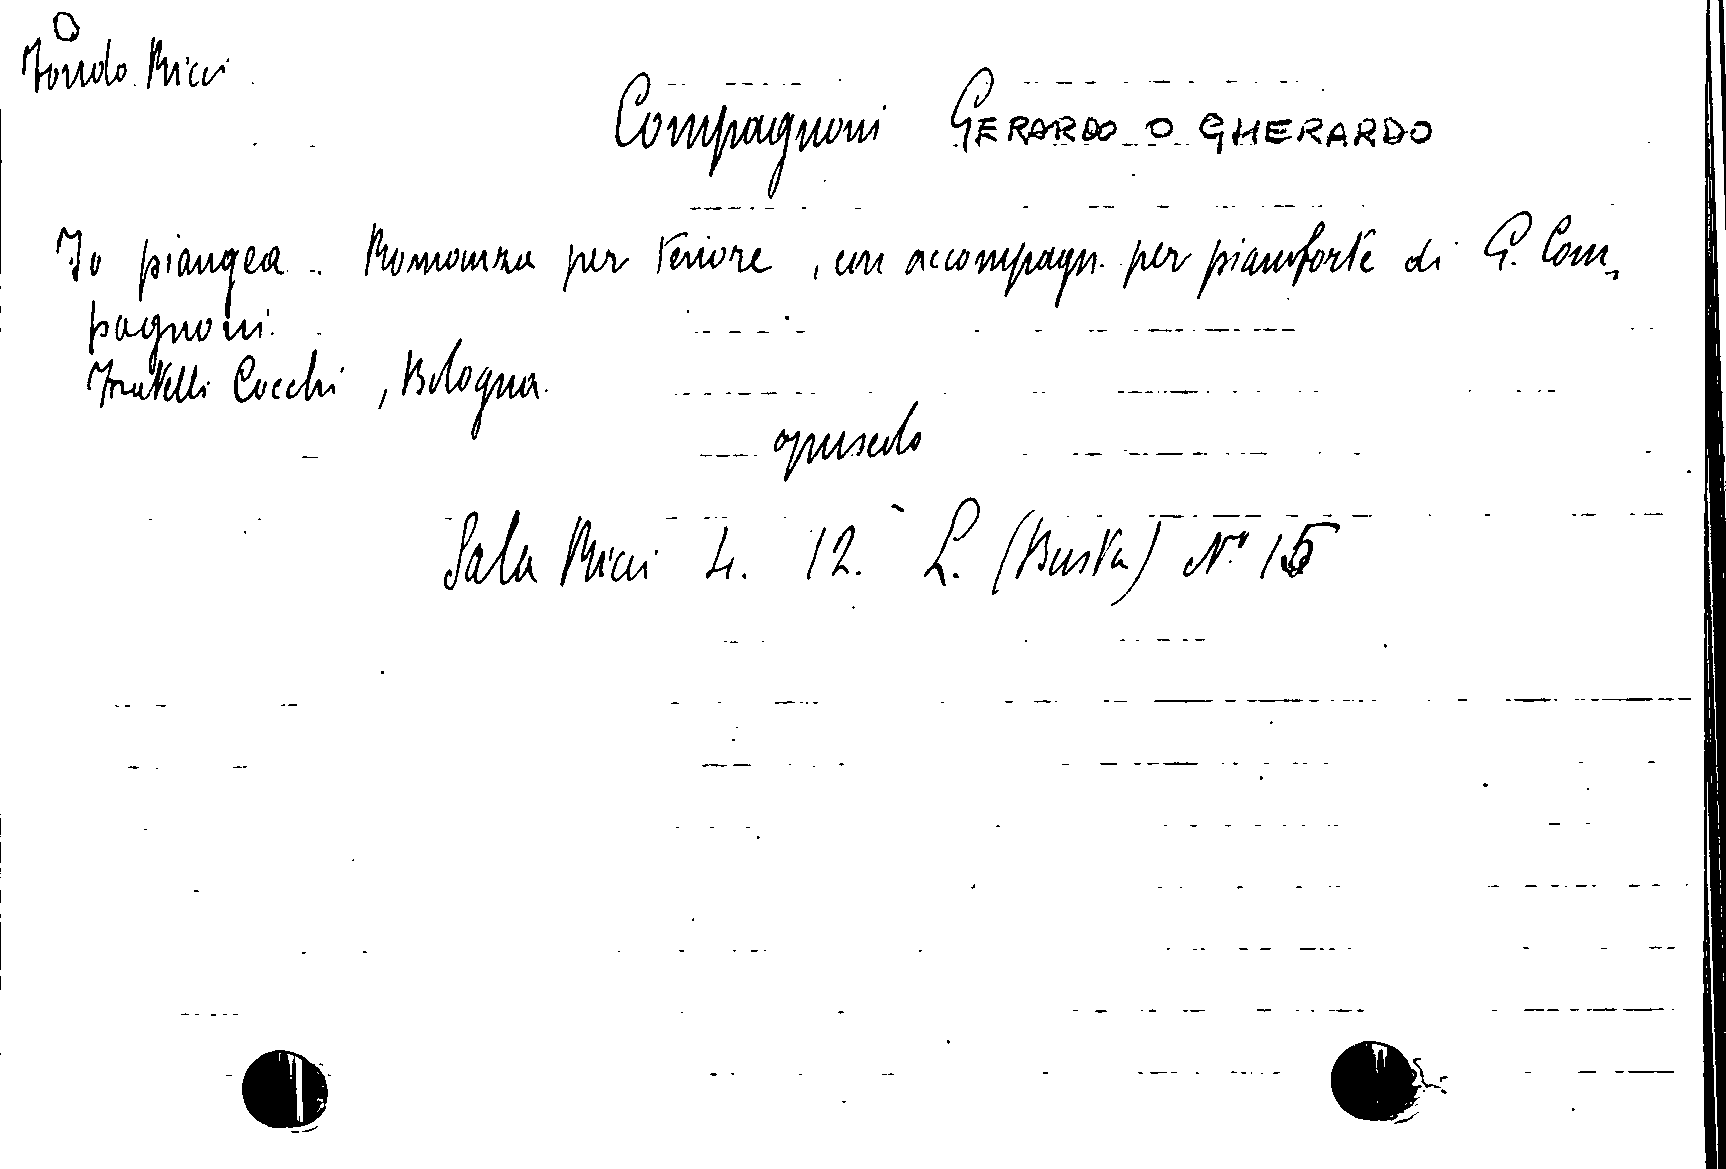 Fondo Ricci
Compagnoni GERARDO O GHERARDO
Io piangea. Romanza per tenore, con accompagn. per pianoforte di G. Com-
pagnoni.
Fratelli Cocchi, Bologna.
opuscolo
Sala Ricci 4. 12. L. (Busta) N° 15